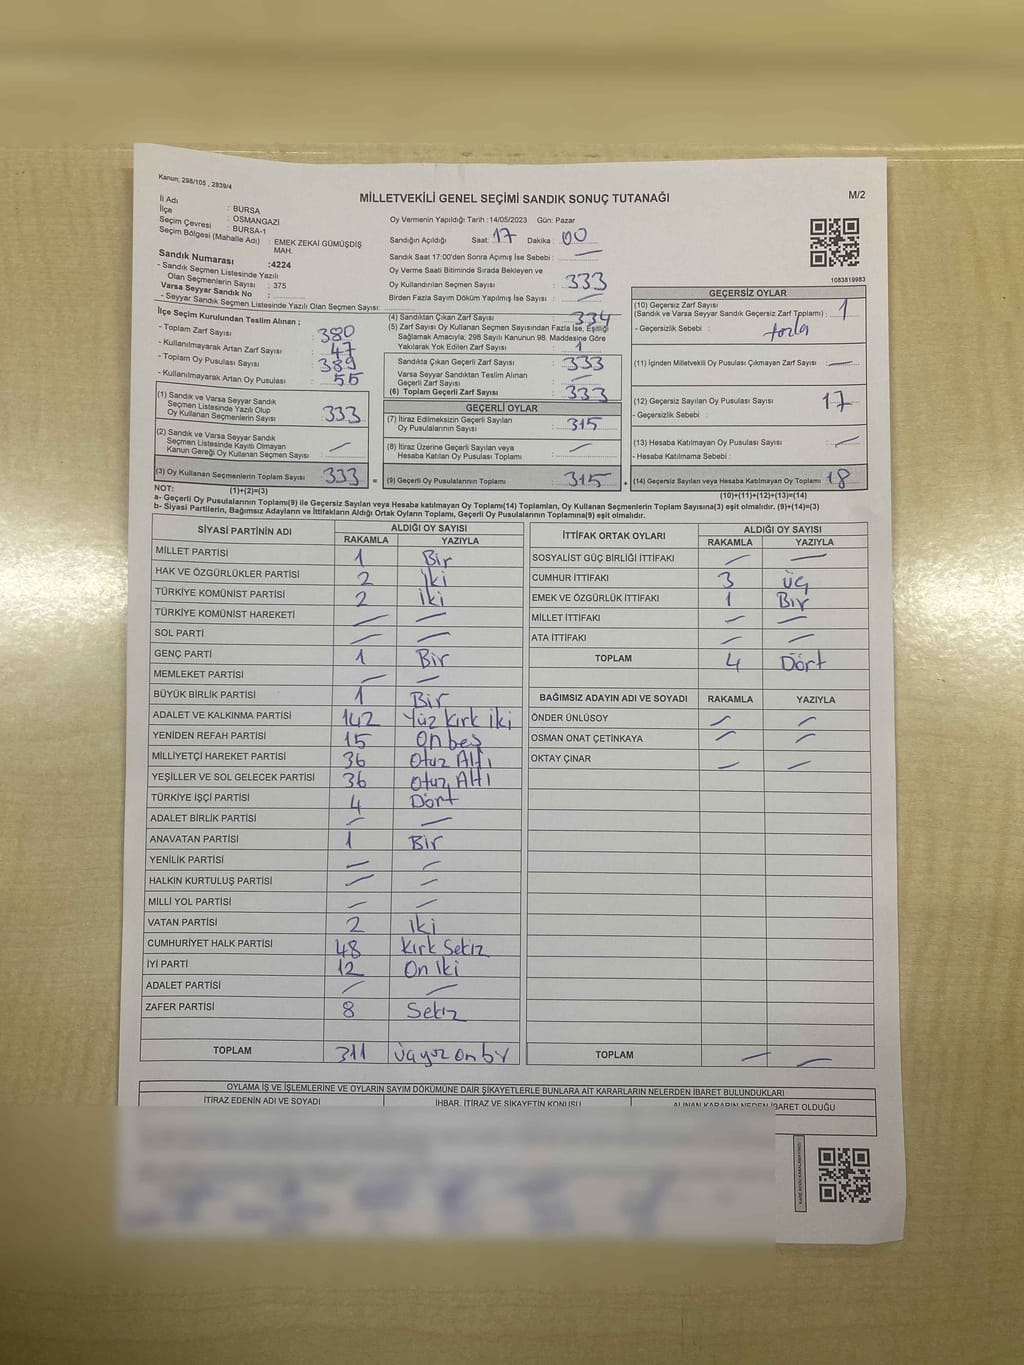 Kanun; 298/105 , 2839/4
MİLLETVEKİLİ GENEL SEÇİMİ SANDIK SONUÇ TUTANAĞI
M/2
İl Adı : BURSA
İlçe : OSMANGAZİ
Seçim Çevresi : BURSA-1
Seçim Bölgesi (Mahalle Adı) : EMEK ZEKAİ GÜMÜŞDİŞ
MAH.
Sandık Numarası :4224
- Sandık Seçmen Listesinde Yazılı
Olan Seçmenlerin Sayısı : 375
Varsa Seyyar Sandık No :
- Seyyar Sandık Seçmen Listesinde Yazılı Olan Seçmen Sayısı:
İlçe Seçim Kurulundan Teslim Alınan ;
- Toplam Zarf Sayısı : 380
- Kullanılmayarak Artan Zarf Sayısı : 47
- Toplam Oy Pusulası Sayısı : 389
- Kullanılmayarak Artan Oy Pusulası : 55
(1) Sandık ve Varsa Seyyar Sandık
Seçmen Listesinde Yazılı Olup
Oy Kullanan Seçmenlerin Sayısı : 333
(2) Sandık ve Varsa Seyyar Sandık
Seçmen Listesinde Kayıtlı Olmayan
Kanun Gereği Oy Kullanan Seçmen Sayısı : —
(3) Oy Kullanan Seçmenlerin Toplam Sayısı : 333 =
Oy Vermenin Yapıldığı Tarih :14/05/2023 Gün: Pazar
Sandığın Açıldığı Saat: 17 Dakika : 00
Sandık Saat 17:00'den Sonra Açımış İse Sebebi : —
Oy Verme Saati Bitiminde Sırada Bekleyen ve
Oy Kullandırılan Seçmen Sayısı : 333
Birden Fazla Sayım Döküm Yapılmış İse Sayısı : —
(4) Sandıktan Çıkan Zarf Sayısı : 334
(5) Zarf Sayısı Oy Kullanan Seçmen Sayısından Fazla İse, Eşitliği
Sağlamak Amacıyla; 298 Sayılı Kanunun 98. Maddesine Göre
Yakılarak Yok Edilen Zarf Sayısı : 1
Sandıkta Çıkan Geçerli Zarf Sayısı : 333
Varsa Seyyar Sandıktan Teslim Alınan
Geçerli Zarf Sayısı : —
(6) Toplam Geçerli Zarf Sayısı : 333
GEÇERLİ OYLAR
(7) İtiraz Edilmeksizin Geçerli Sayılan
Oy Pusulalarının Sayısı : 315
(8) İtiraz Üzerine Geçerli Sayılan veya
Hesaba Katılan Oy Pusulası Toplamı : —
(9) Geçerli Oy Pusulalarının Toplamı : 315 +
1083819983
GEÇERSİZ OYLAR
(10) Geçersiz Zarf Sayısı
(Sandık ve Varsa Seyyar Sandık Geçersiz Zarf Toplamı) : 1
- Geçersizlik Sebebi : fazla
(11) İçinden Milletvekili Oy Pusulası Çıkmayan Zarf Sayısı : —
(12) Geçersiz Sayılan Oy Pusulası Sayısı : 17
- Geçersizlik Sebebi :
(13) Hesaba Katılmayan Oy Pusulası Sayısı : —
- Hesaba Katılmama Sebebi :
(14) Geçersiz Sayılan veya Hesaba Katılmayan Oy Toplamı : 18
NOT: (1)+(2)=(3) (10)+(11)+(12)+(13)=(14)
a- Geçerli Oy Pusulalarının Toplamı(9) ile Geçersiz Sayılan veya Hesaba katılmayan Oy Toplamı(14) Toplamları, Oy Kullanan Seçmenlerin Toplam Sayısına(3) eşit olmalıdır. (9)+(14)=(3)
b- Siyasi Partilerin, Bağımsız Adayların ve İttifakların Aldığı Ortak Oyların Toplamı, Geçerli Oy Pusulalarının Toplamına(9) eşit olmalıdır.
SİYASİ PARTİNİN ADI ALDIĞI OY SAYISI
RAKAMLA YAZIYLA
MİLLET PARTİSİ 1 Bir
HAK VE ÖZGÜRLÜKLER PARTİSİ 2 İki
TÜRKİYE KOMÜNİST PARTİSİ 2 İki
TÜRKİYE KOMÜNİST HAREKETİ — —
SOL PARTİ — —
GENÇ PARTİ 1 Bir
MEMLEKET PARTİSİ — —
BÜYÜK BİRLİK PARTİSİ 1 Bir
ADALET VE KALKINMA PARTİSİ 142 Yüz Kırk iki
YENİDEN REFAH PARTİSİ 15 On beş
MİLLİYETÇİ HAREKET PARTİSİ 36 Otuz Altı
YEŞİLLER VE SOL GELECEK PARTİSİ 36 Otuz Altı
TÜRKİYE İŞÇİ PARTİSİ 4 Dört
ADALET BİRLİK PARTİSİ — —
ANAVATAN PARTİSİ 1 Bir
YENİLİK PARTİSİ — —
HALKIN KURTULUŞ PARTİSİ — —
MİLLİ YOL PARTİSİ — —
VATAN PARTİSİ 2 İki
CUMHURİYET HALK PARTİSİ 48 Kırk Sekiz
İYİ PARTİ 12 On İki
ADALET PARTİSİ — —
ZAFER PARTİSİ 8 Sekiz
TOPLAM 311 üçyüz on bir
İTTİFAK ORTAK OYLARI ALDIĞI OY SAYISI
RAKAMLA YAZIYLA
SOSYALİST GÜÇ BİRLİĞİ İTTİFAKI — —
CUMHUR İTTİFAKI 3 üç
EMEK VE ÖZGÜRLÜK İTTİFAKI 1 Bir
MİLLET İTTİFAKI — —
ATA İTTİFAKI — —
TOPLAM 4 Dört
BAĞIMSIZ ADAYIN ADI VE SOYADI RAKAMLA YAZIYLA
ÖNDER ÜNLÜSOY — —
OSMAN ONAT ÇETİNKAYA — —
OKTAY ÇINAR — —
TOPLAM — —
OYLAMA İŞ VE İŞLEMLERİNE VE OYLARIN SAYIM DÖKÜMÜNE DAİR ŞİKAYETLERLE BUNLARA AİT KARARLARIN NELERDEN İBARET BULUNDUKLARI
İTİRAZ EDENİN ADI VE SOYADI İHBAR, İTİRAZ VE ŞİKAYETİN KONUSU ALINAN KARARIN NEDEN İBARET OLDUĞU